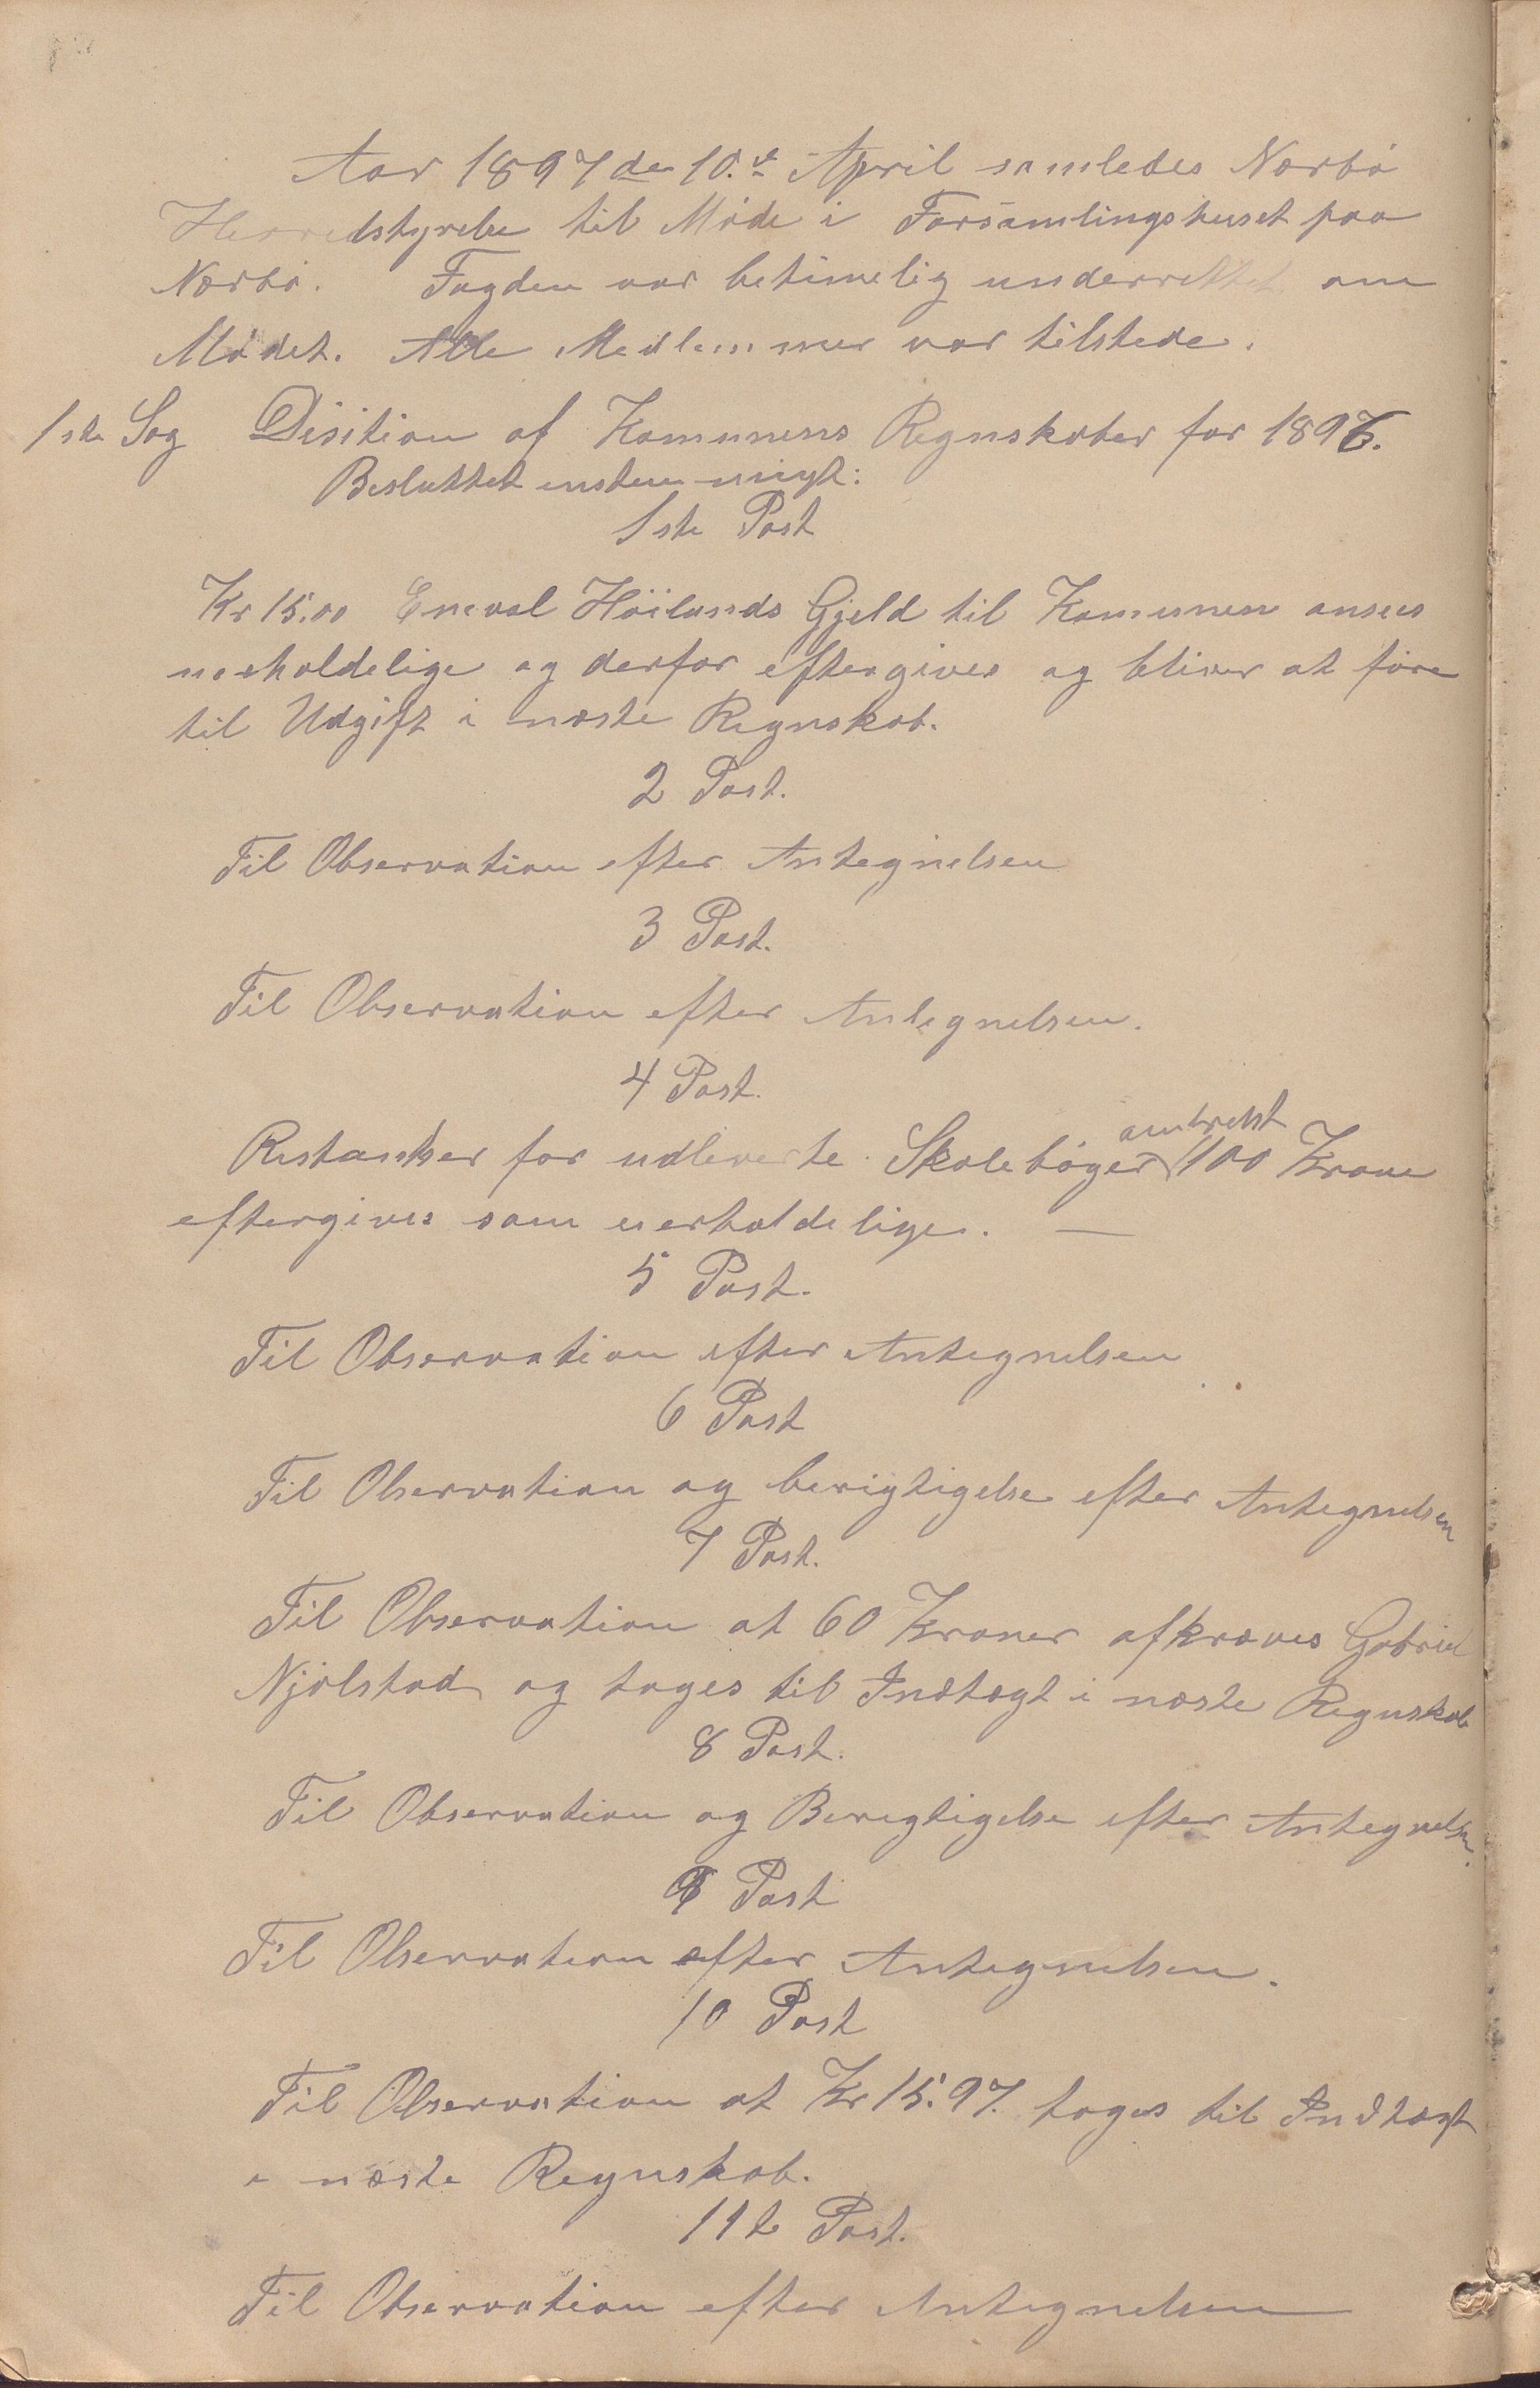 Aar 1897 den 10.de April samledes Nærbø
Herredstyrelse til Møde i Forsamlingshuset paa
Nærbø. Fogden var betimelig underrettet om
Mødet. Alle Medlemmer var tilstede.
1ste Sag Disition af Komunens Regnskaber for 1896.
Besluttet enstemmigt:
1ste Post
Kr 15.00 Eneval Høilands Gjeld til Komunen ansees
uerholdelige og derfor eftergives og bliver at føre
til Udgift i næste Regnskab.
2 Post.
Til Observation efter Antegnelsen
3 Post.
Til Observation efter Antegnelsen.
4 Post.
Restantser for udleverte Skolebøger omtrent 100 Krone
eftergives som uerholdelige. —
5 Post.
Til Observation efter Antegnelsen
6 Post
Til Observation og berigtigelse efter Antegnelsen
7 Post.
Til Observation at 60 Kroner afkræves Gabriel
Njølstad og tages til Indtægt i næste Regnskab
8 Post.
Til Observation og Beregtigelse efter Antegnelsen.
9 Post
Til Observation efter Antegnelsen.
10 Post
Til Observation at Kr 15.97. tages til Indtægt
i næste Regnskab.
11te Post.
Til Observation efter Antegnelsen